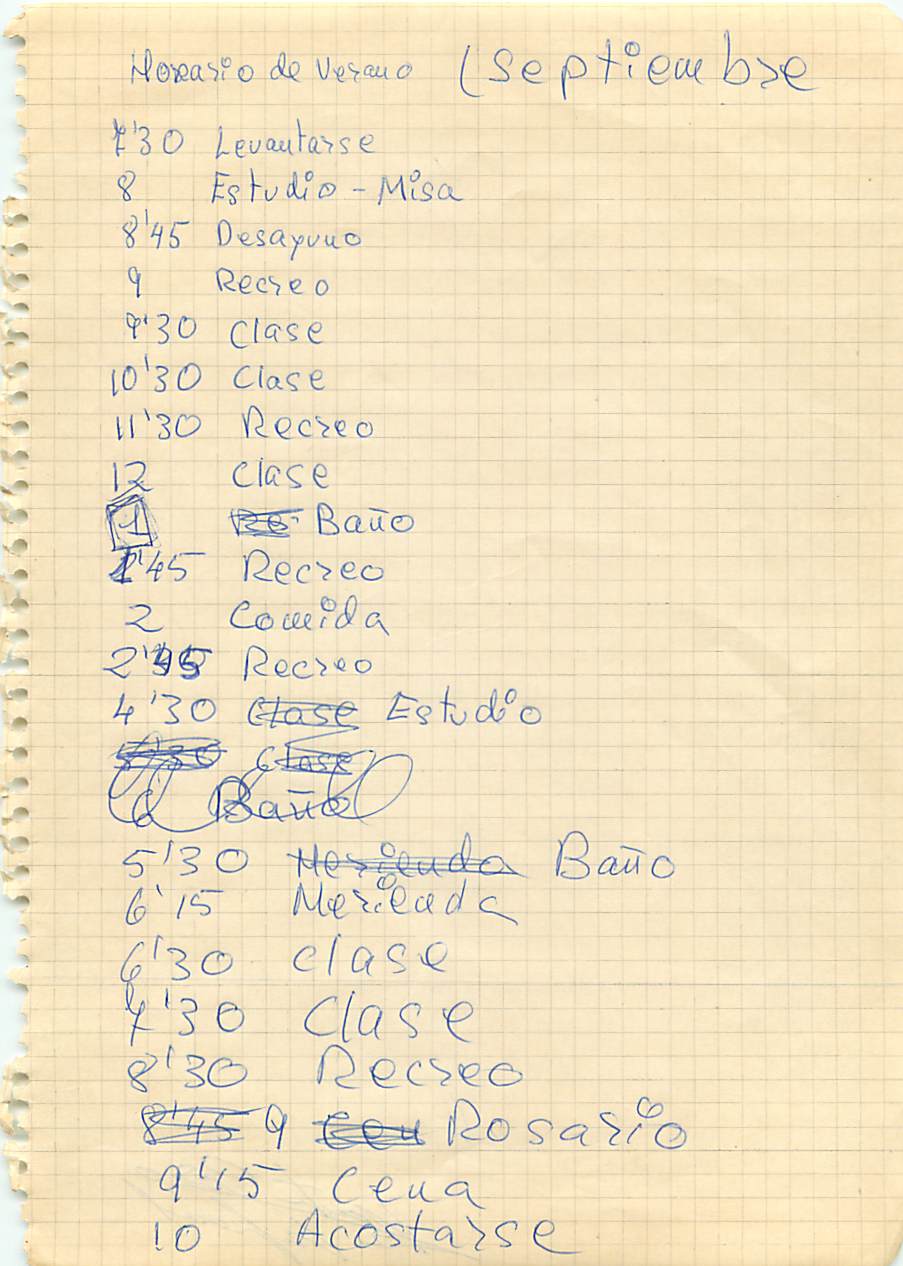 Horario de Verano (Septiembre
7'30 Levantarse
8 Estudio - Misa
8'45 Desayuno
9 Recreo
9'30 Clase
10'30 Clase
11'30 Recreo
12 Clase
1 Baño
1'45 Recreo
2 Comida
2'45 Recreo
4'30 Clase Estudio
5'30 Clase
6 Baño
5'30 Merienda Baño
6'15 Merienda
6'30 Clase
7'30 Clase
8'30 Recreo
8'45 9 Cen Rosario
9'15 Cena
10 Acostarse